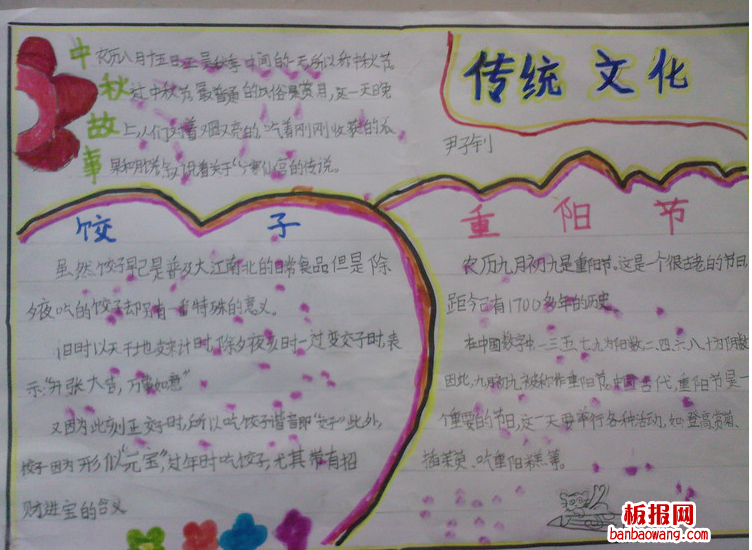 中秋故事
农历八月十五日正是秋季中间的一天,所以称中秋节
过中秋节最普通的风俗是赏月,这一天晚
上,人们对着又圆又亮的 吃着刚刚收获的水
果和月饼 说着关于"广寒仙宫的传说。
传统 文化
尹子钊
饺 子
虽然饺子早已是普及大江南北的日常食品但是除
夕夜吃的饺子却另有一番特殊的意义。
旧时以天干地支来计时,除夕夜亥时一过变交子时,表
示"开张大吉,万事如意"
又因为此刻正交子时,所以吃饺子谐音即"交子"此外,
饺子因为形似"元宝",过年时吃饺子,尤其带有招
财进宝的含义
重 阳 节
农历九月初九是重阳节。这是一个很古老的节日
距今已有1700多年的历史。
在中国数字中,一三五七九为阳数二四六八十为阴数
因此,九月初九被称作重阳节。中国古代,重阳节是一
个重要的节日,这一天要举行各种活动,如登高赏菊、
插茱萸、吃重阳糕等。
板报网
banbaowang.com